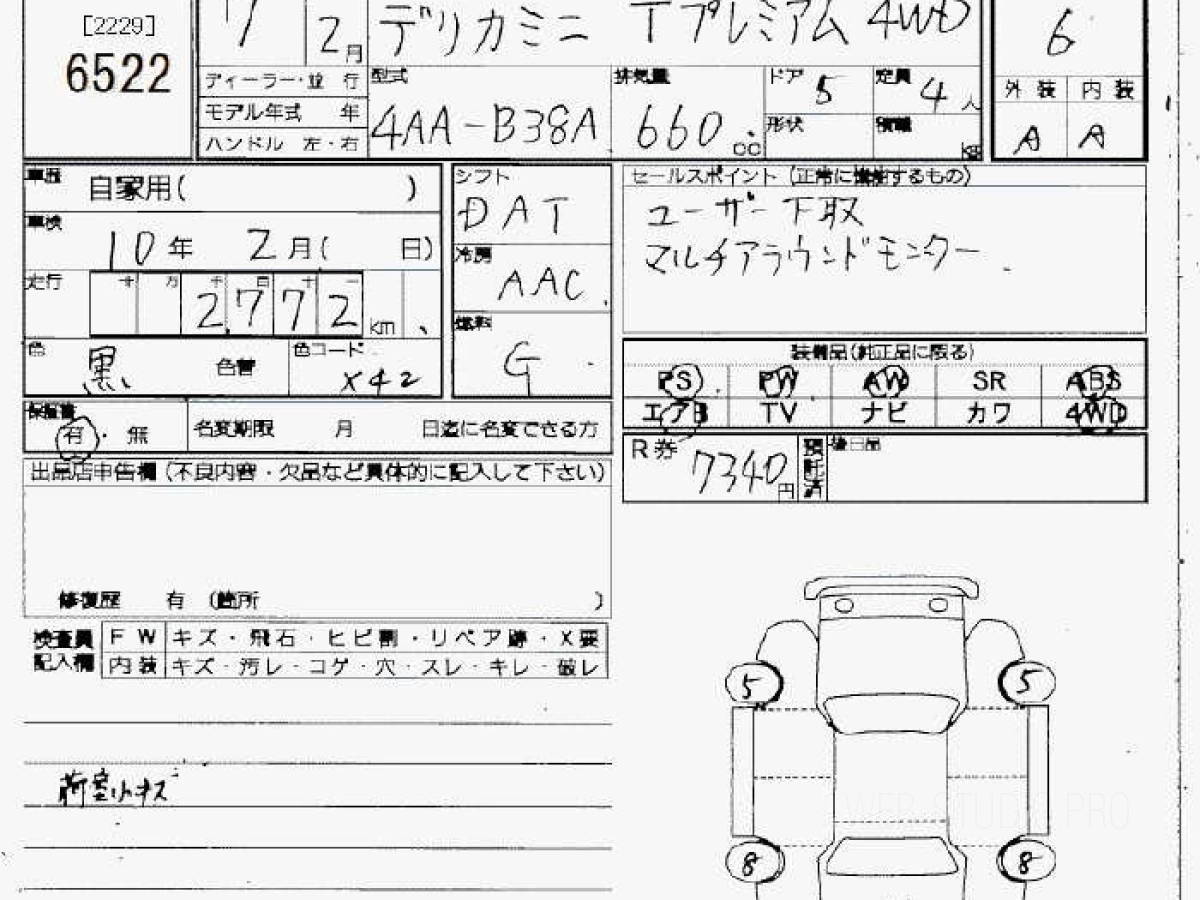 [2229]
6522
7 2月 デリカミニ Tプレミアム 4WD 6
ディーラー・並行
モデル年式 年
ハンドル 左・右
型式 4AA-B38A
排気量 660 cc
ドア 5
定員 4人
形状
積載 kg
外装 内装
A A
車歴 自家用( )
車検 10年 2月( 日)
走行 十 万 千 百 十 一
2,772 km
色 黒 色替 色コード X42
シフト DAT
冷房 AAC
燃料 G
セールスポイント (正常に機能するもの)
ユーザー下取
マルチアラウンドモニター
装備品(純正品に限る)
PS PW AW SR ABS
エアB TV ナビ カワ 4WD
保証書 有・無
名変期限 月 日迄に名変できる方
R券 7340円 預託済
後日品
出品店申告欄(不良内容・欠品など具体的に記入して下さい)
修復歴 有 (箇所 )
検査員記入欄
FW キズ・飛石・ヒビ割・リペア跡・X要
内装 キズ・汚レ・コゲ・穴・スレ・キレ・破レ
荷室小キズ
5 5
8 8
WEB STUDIO PRO